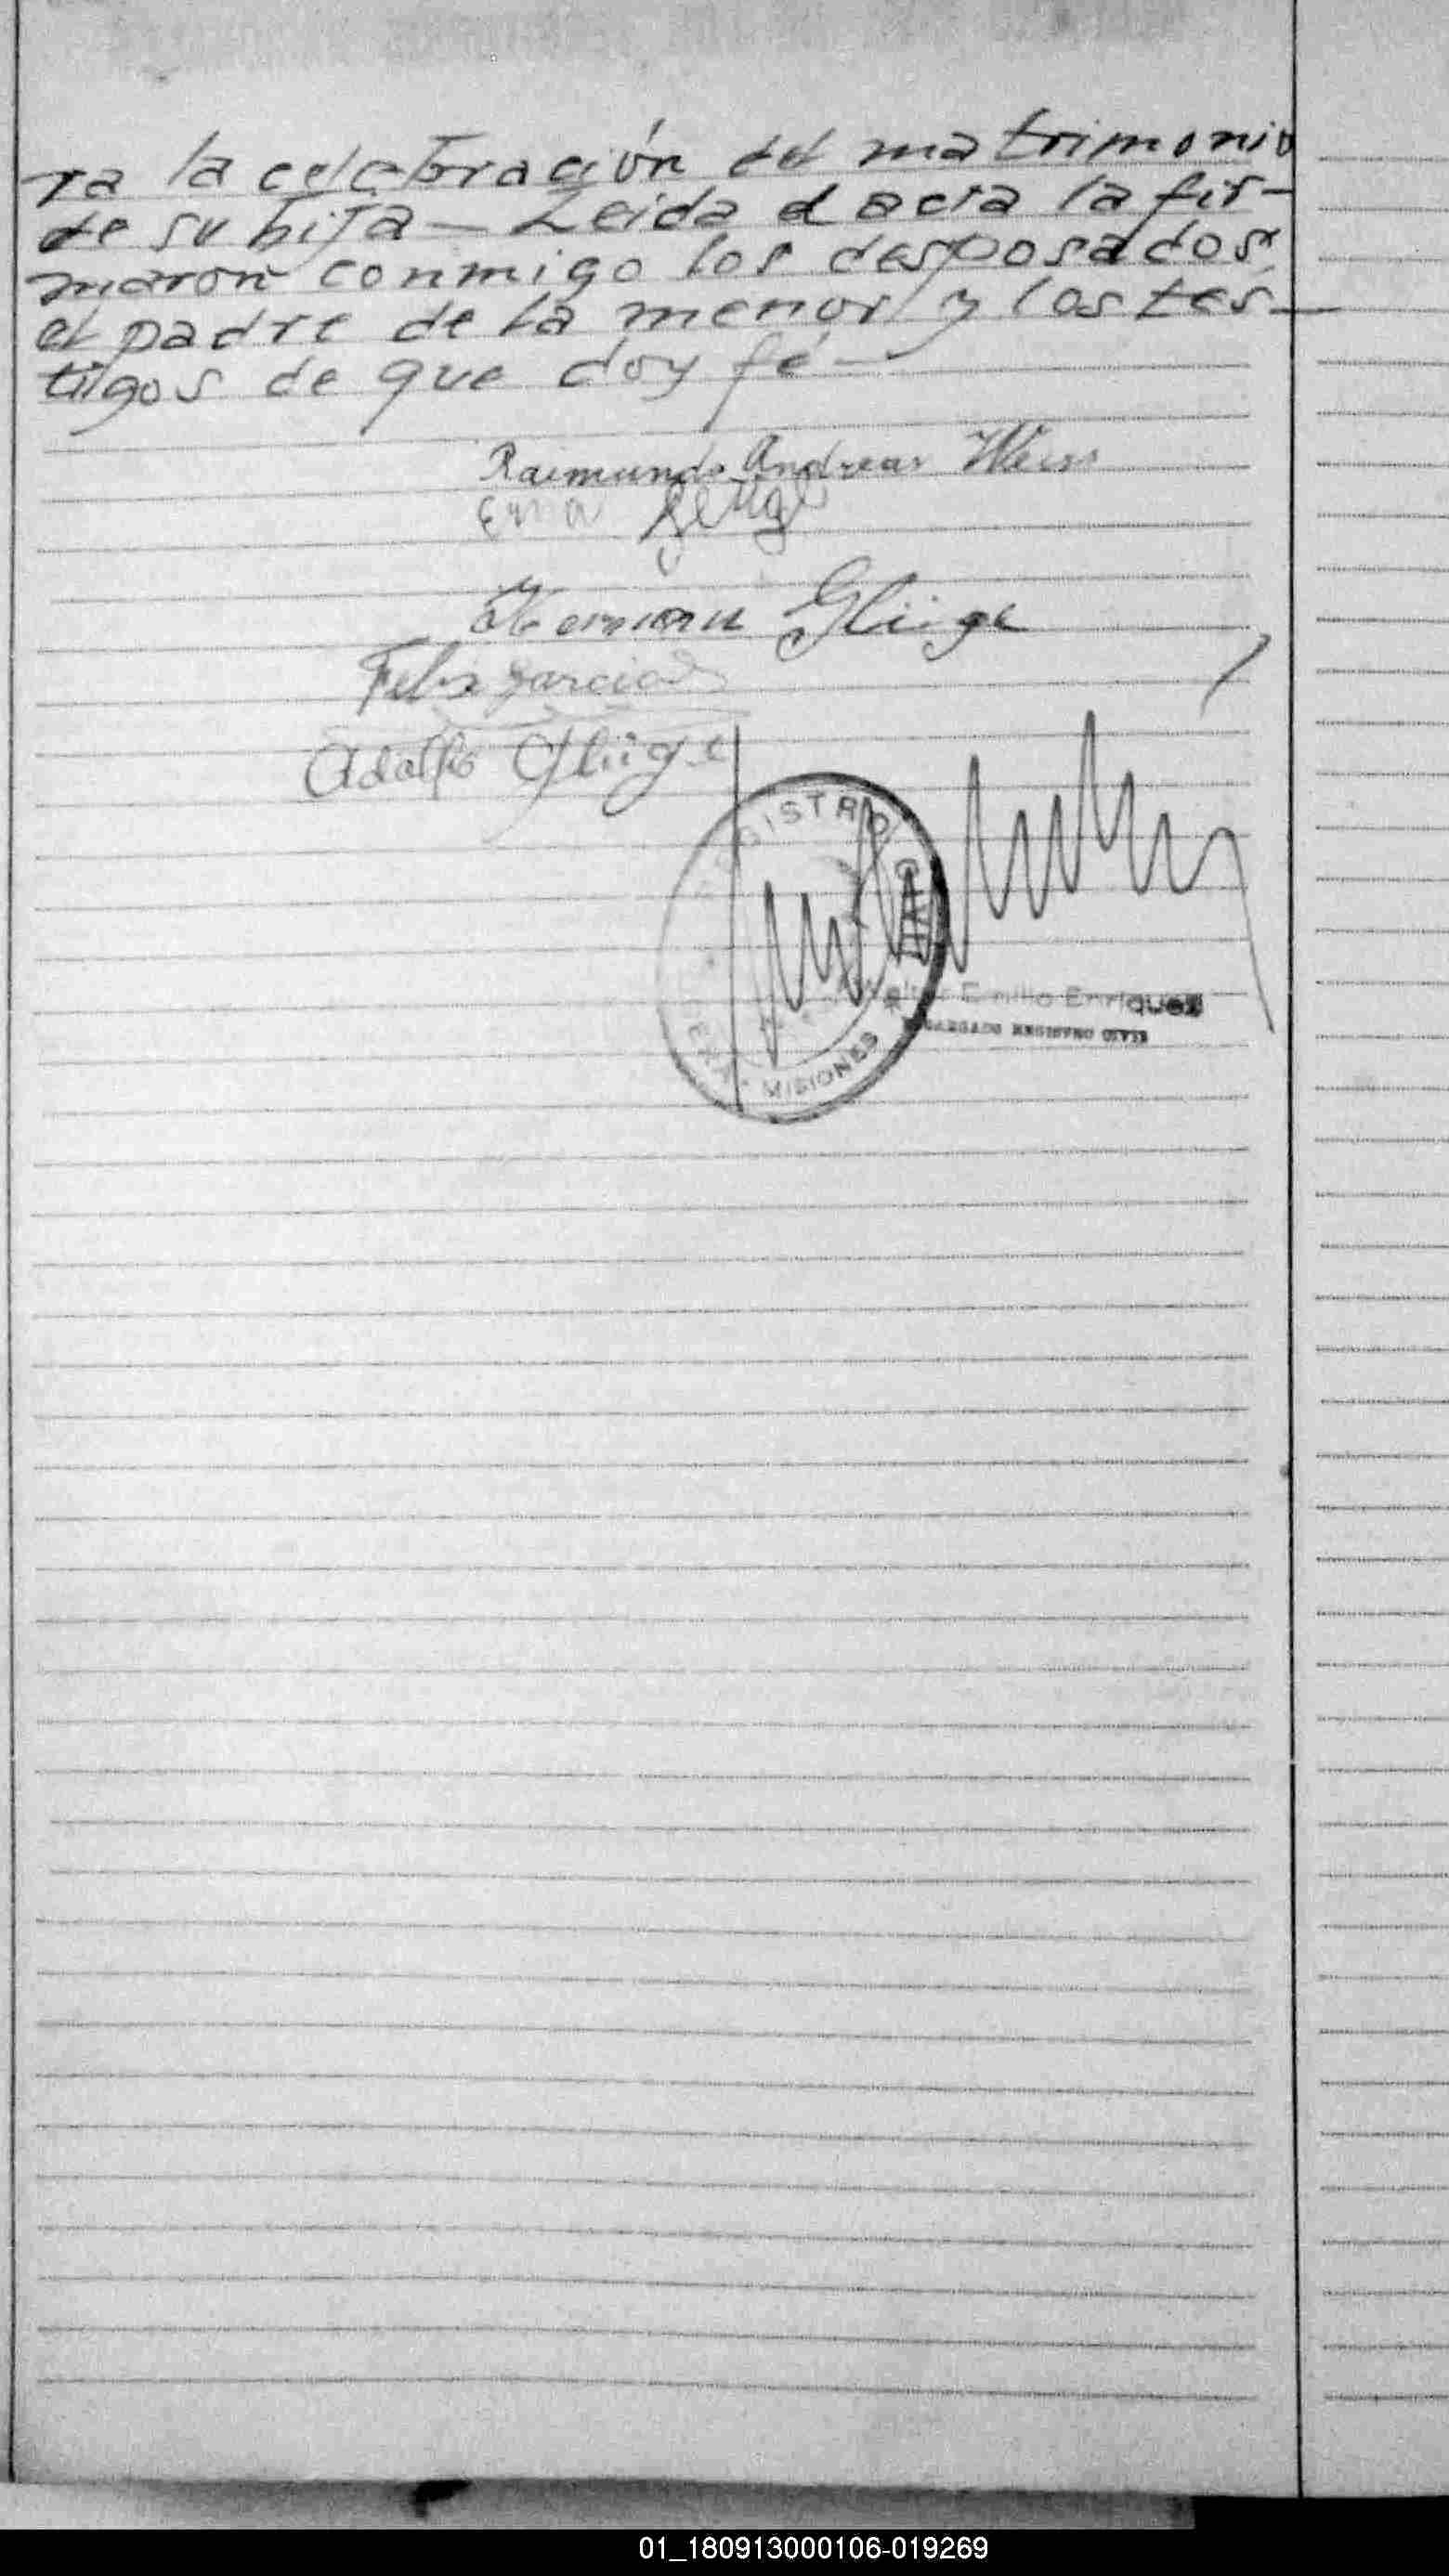 ra la celebración del matrimonio
de su hija — Leida el acta la fir-
maron conmigo los desposados,
el padre de la menor y los tes-
tigos de que doy fé —
Raimundo Andreas Weiss
Erna
Herman Glüge
Felix Garcia
Adolfo Glüge
REGISTRO CIVIL
MISIONES
Emilio Enriquez
ENCARGADO REGISTRO CIVIL
01_180913000106-019269